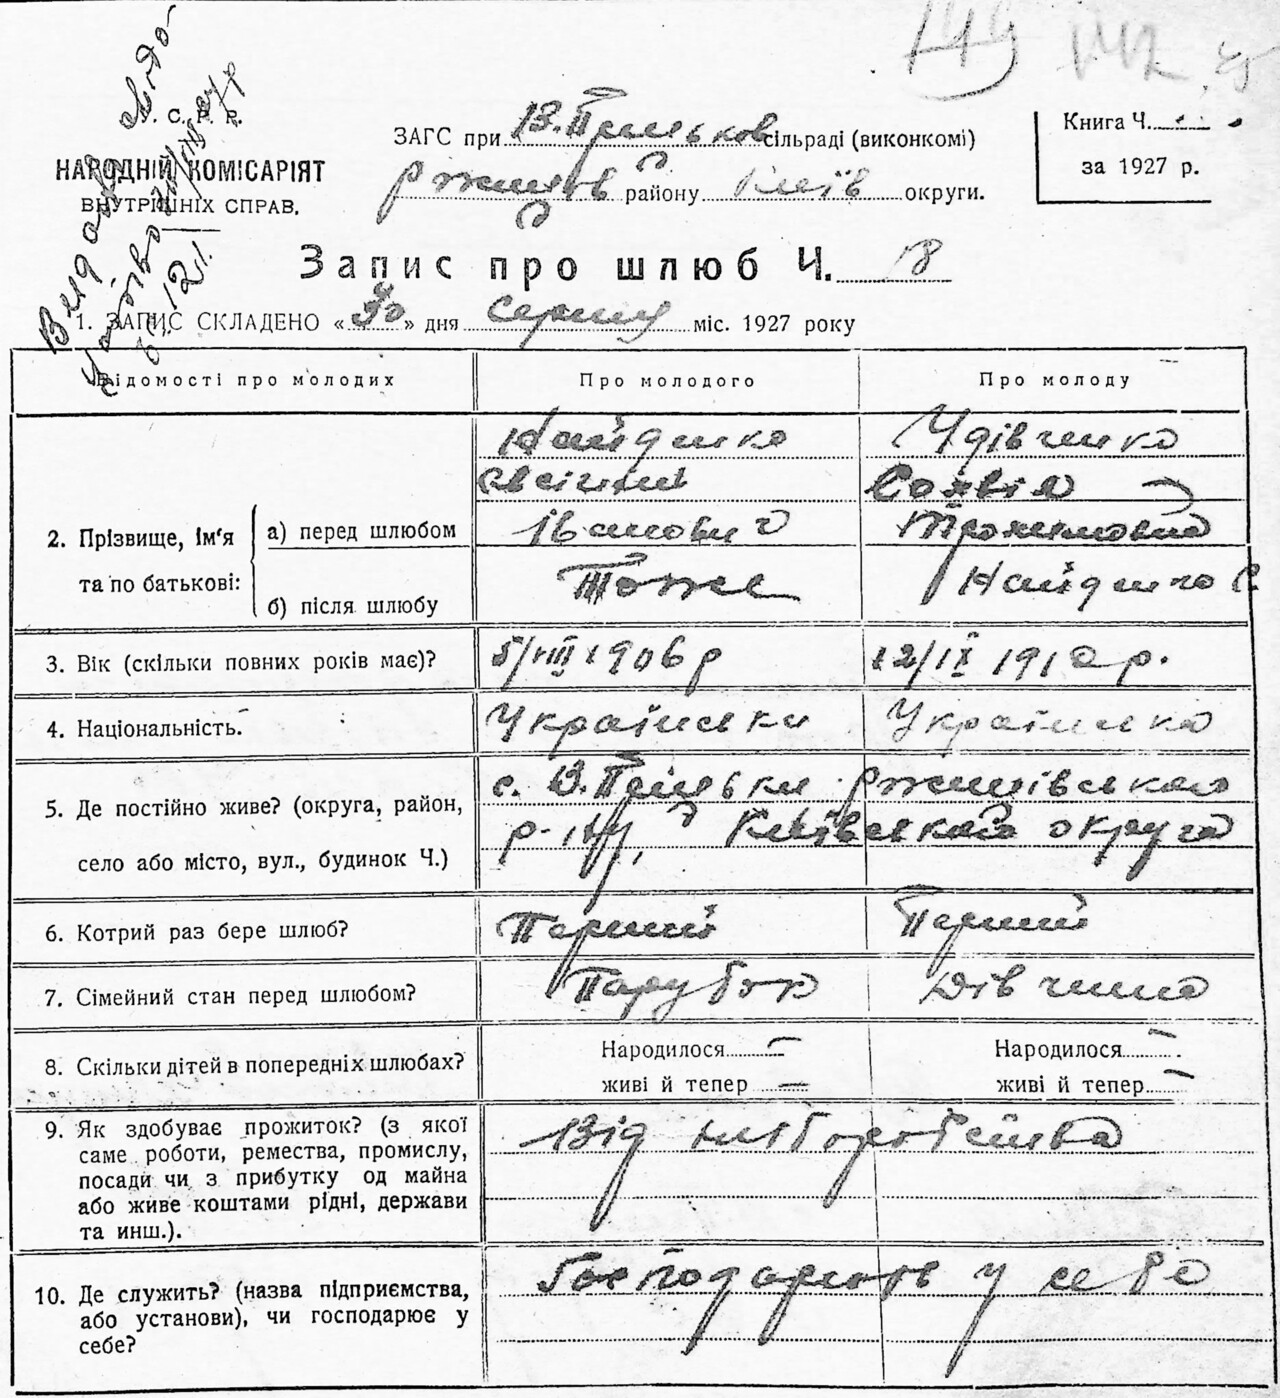 149 142
Видано
С. Р. Р.
НАРОДНІЙ КОМІСАРІЯТ
ВНУТРІШНІХ СПРАВ.
ЗАГС при В. Пріцьков сільраді (виконкомі)
Ржищів району Київ округи.
Книга Ч.
за 1927 р.
Запис про шлюб Ч. 18
1. ЗАПИС СКЛАДЕНО «30» дня серпня міс. 1927 року
Відомості про молодих Про молодого Про молоду
Найденко Удівченко
Євгеній Софія
2. Прізвище, ім'я та по батькові: а) перед шлюбом Іванович Трохимовна
б) після шлюбу Тоже Найденко С
3. Вік (скільки повних років має)? 5/VIII 1906 р 12/IX 1910 р.
4. Національність. Українськи Українка
5. Де постійно живе? (округа, район, с. В. Пріцьки Ржищівського
село або місто, вул., будинок Ч.) р-ну, Київського округа
6. Котрий раз бере шлюб? Перший Перший
7. Сімейний стан перед шлюбом? Парубок Дівчина
8. Скільки дітей в попередніх шлюбах? Народилося — Народилося —
живі й тепер — живі й тепер —
9. Як здобуває прожиток? (з якої Від хліборобства
саме роботи, ремества, промислу,
посади чи з прибутку од майна
або живе коштами рідні, держави
та инш.).
10. Де служить? (назва підприємства, Господарють у себе
або установи), чи господарює у
себе?